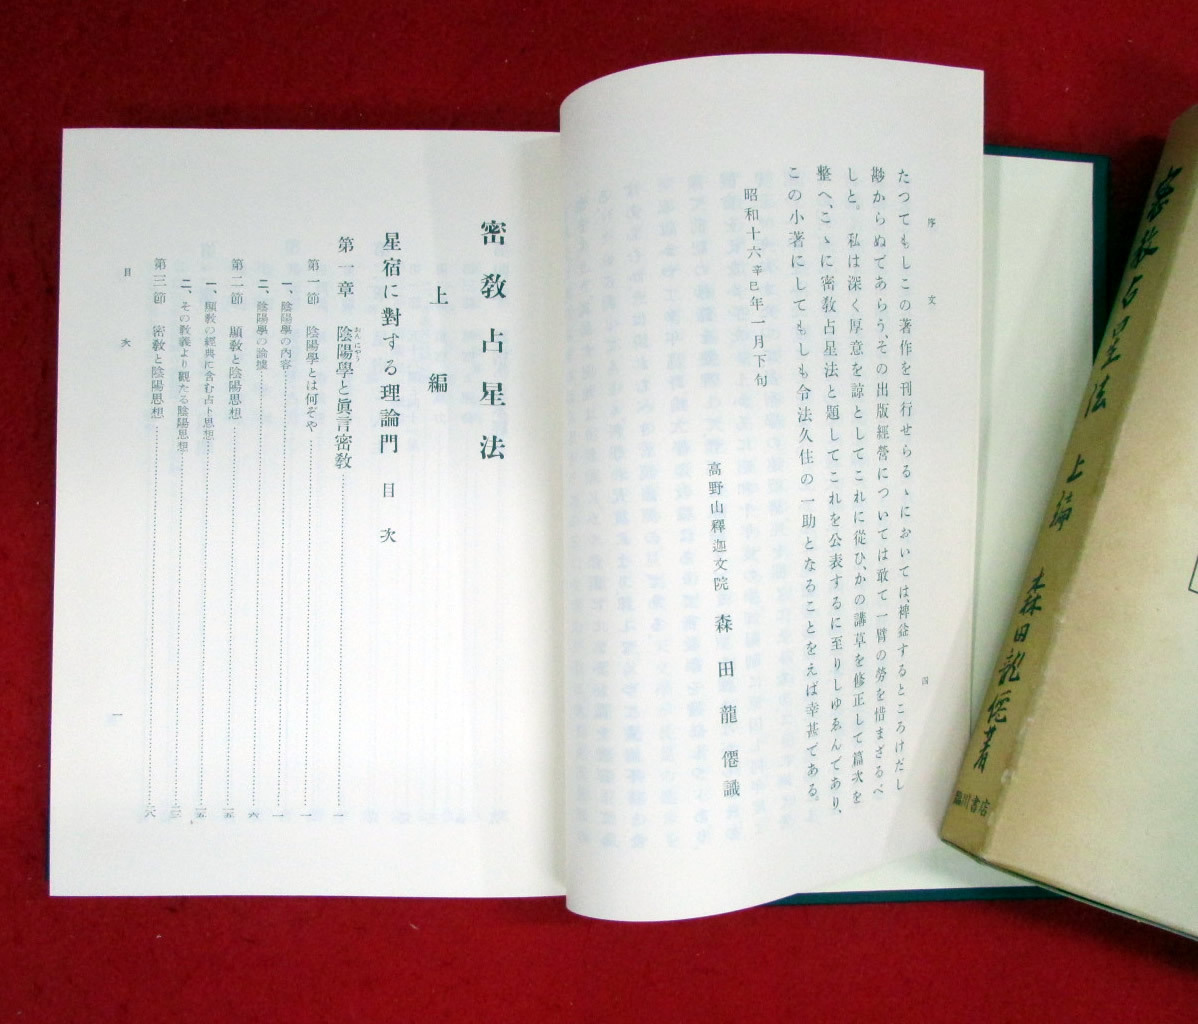 序文
四
たつてもしこの著作を刊行せらるゝにおいては、裨益するところけだし
尠からぬであらう、その出版經營については敢て一臂の勞を惜まざるべ
しと。私は深く厚意を諒としてこれに從ひ、かの講草を修正して篇次を
整へ、こゝに密敎占星法と題してこれを公表するに至りしゆゑんであり、
この小著にしてもしも令法久住の一助となることをえば幸甚である。
昭和十六辛巳年一月下旬
高野山釋迦文院 森田龍僊識
密敎占星法
上編
星宿に對する理論門 目次
第一章 陰陽學と眞言密敎 一
おんにやう
第一節 陰陽學とは何ぞや 一
一、陰陽學の內容 一
二、陰陽學の論據 六
第二節 顯敎と陰陽思想
一、顯敎の經典に含む占卜思想
二、その敎義より觀たる陰陽思想
第三節 密敎と陰陽思想
目次
一
密敎占星法 上編 森田龍僊著
臨川書店